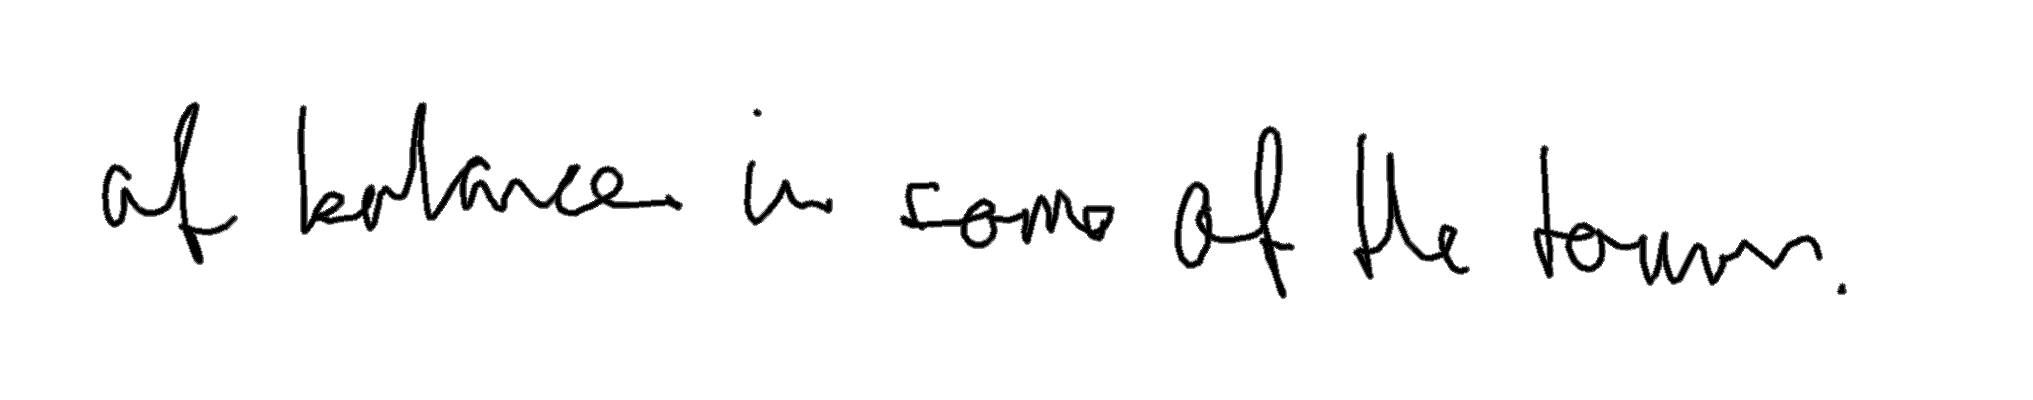 of balance in some of the town.